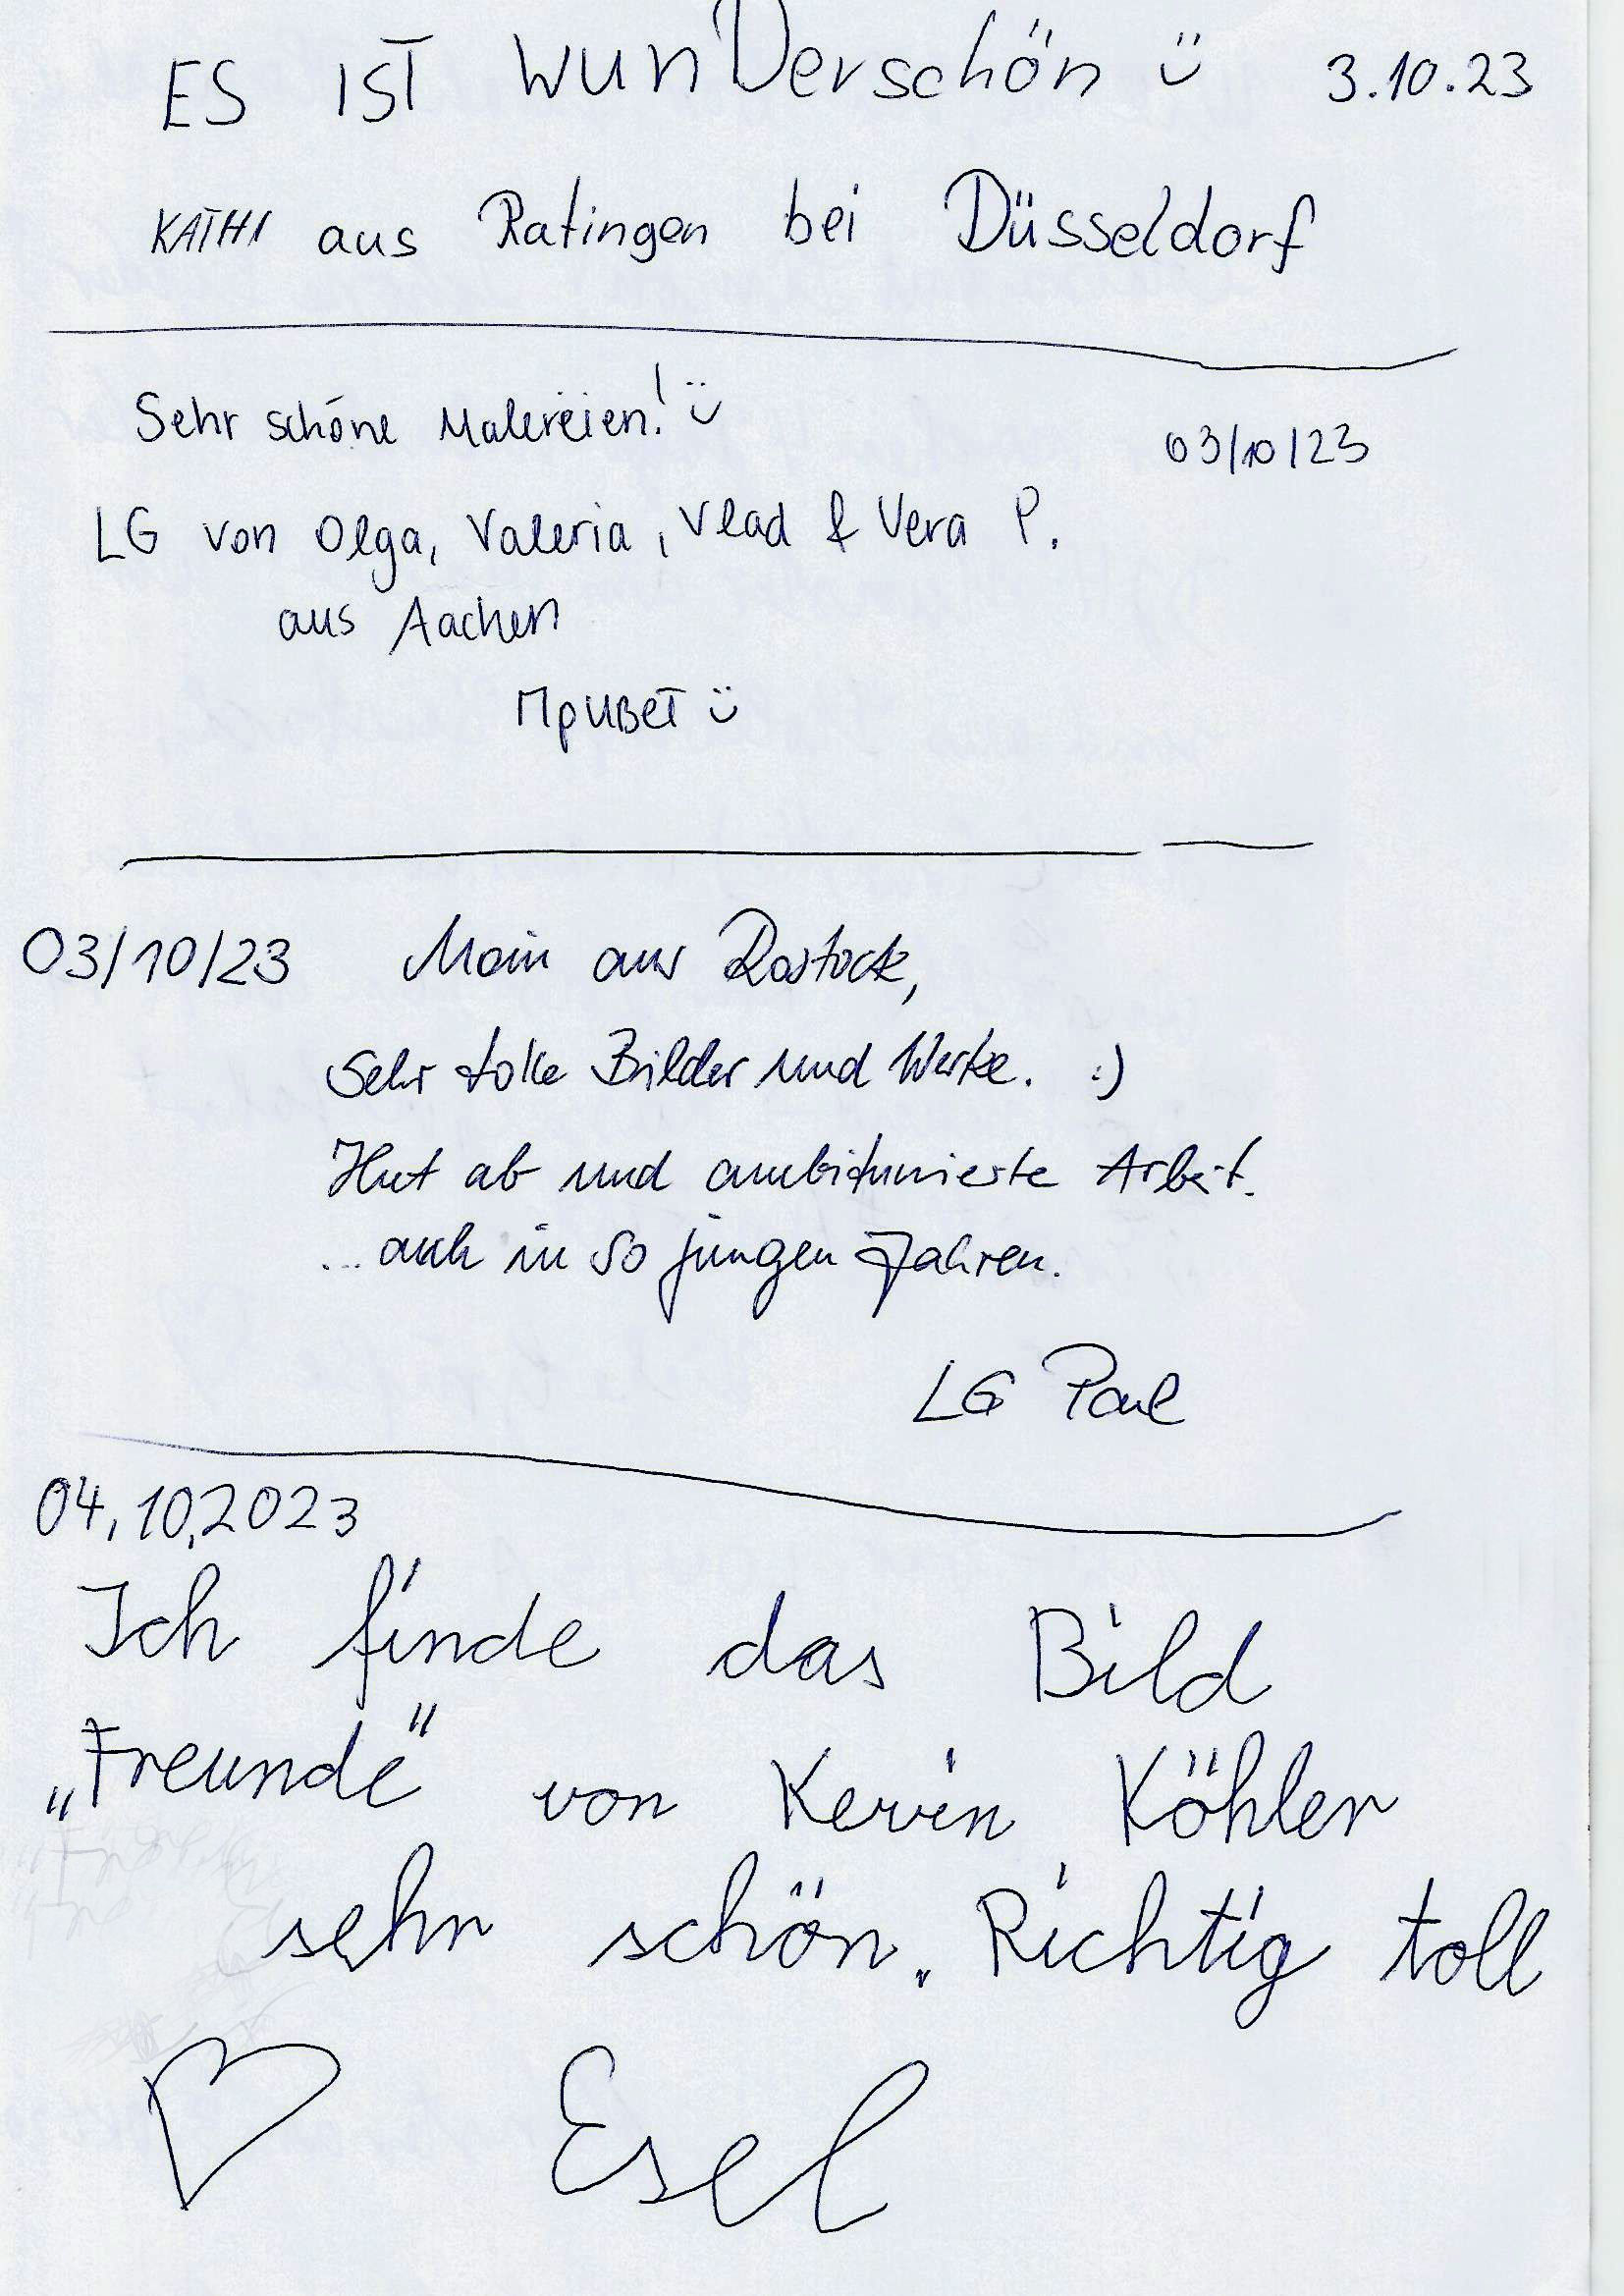 ES IST wunDerschön ü 3.10.23
KATHI aus Ratingen bei Düsseldorf
Sehr schöne Malereien! ü
03/10/23
LG von Olga, Valeria, Vlad & Vera P.
aus Aachen
Привет ü
03/10/23 Moin aus Rostock,
Sehr tolle Bilder und Werke. :)
Hut ab und ambitunierte Arbeit.
... auch in so jungen Jahren.
LG Paul
04.10.2023
Ich finde das Bild
„Freunde" von Kevin Köhler
sehr schön. Richtig toll
♡ Esel